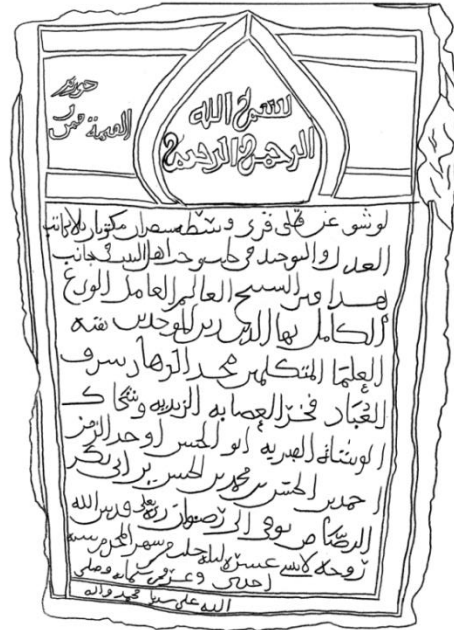 بسم الله
الرحمن الرحيم
لو شق عن قلبي قرى وسطه سطران مكتوبان بلا كاتب
العدل والتوحيد في جانب وحب اهل البيت في جانب
هذا قبر الشيخ العالم العامل الورع
الكامل بها الدين زين الموحدين بقية
العلما المتكلمين الزهاد شرف
العباد فخر العصابه الزيديه
ابو الحسن اوحد الزمن
احمد بن الحسن بن محمد بن الحسن بن ابي بكر
الرصاص توفي الى رضوان ربه تعالى وقدس الله
روحه لاثني عشره ليلة خلت من شهر المحرم سنة
احدى وعشرين وستمائة وصلى
الله على سيدنا محمد واله